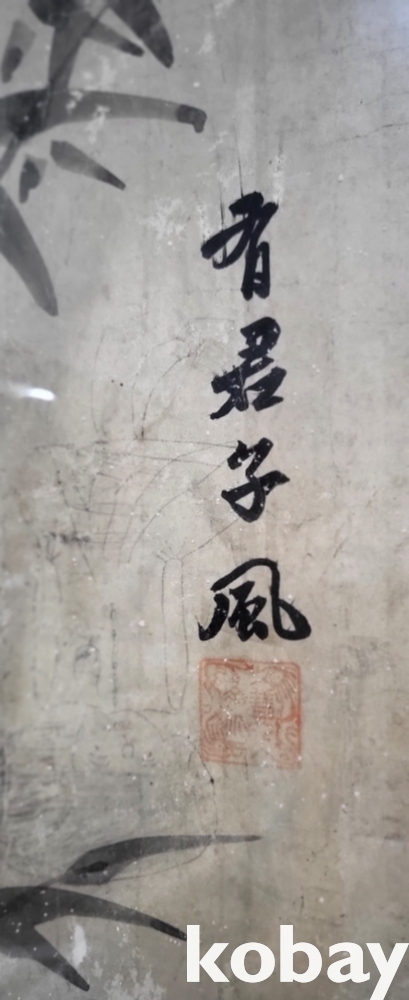 有君子風
kobay